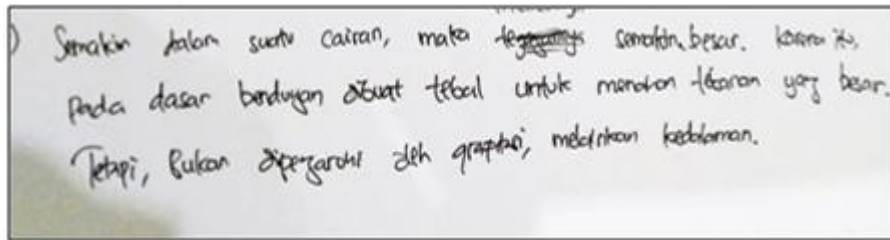 ) Semakin dalam suatu cairan, maka semakin besar. karena itu,
pada dasar bendungan dibuat tebal untuk menahan tekanan yang besar.
Tetapi, Bukan dipengaruhi oleh grapitasi, melainkan kedalaman.